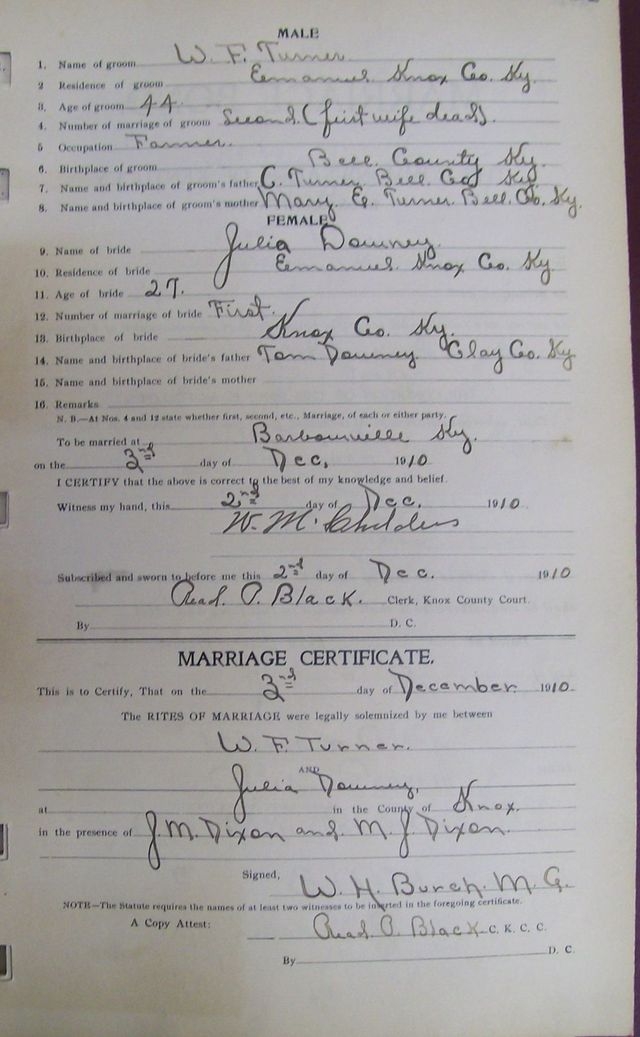 MALE
1. Name of groom W. F. Turner
2 Residence of groom Emanuel Knox Co. Ky.
3. Age of groom 44
4. Number of marriage of groom Second. (first wife dead).
5 Occupation Farmer.
6. Birthplace of groom Bell. County Ky.
7. Name and birthplace of groom's father C. Turner Bell. Co. Ky
8. Name and birthplace of groom's mother Mary. E. Turner. Bell. Co. Ky.
FEMALE
9. Name of bride Julia Downey.
10. Residence of bride Emanuel. Knox Co. Ky
11. Age of bride 27.
12. Number of marriage of bride First.
13. Birthplace of bride Knox Co. Ky.
14. Name and birthplace of bride's father Tom Downey Clay Co. Ky
15. Name and birthplace of bride's mother
16. Remarks
N. B.—At Nos. 4 and 12 state whether first, second, etc., Marriage, of each or either party.
To be married at Barbourville Ky.
on the 3nd day of Dec, 1910
I CERTIFY that the above is correct to the best of my knowledge and belief.
Witness my hand, this 2nd day of Dec. 1910.
W. M. Childers
Subscribed and sworn to before me this 2nd day of Dec. 1910
Read. P. Black. Clerk, Knox County Court.
By D. C.
MARRIAGE CERTIFICATE.
This is to Certify, That on the 3nd day of December 1910
The RITES OF MARRIAGE were legally solemnized by me between
W. F. Turner.
AND
Julia Downey,
at in the County of Knox.
in the presence of J. M. Dixon and. M. J. Dixon.
Signed, W. H. Burch. M. G.
NOTE—The Statute requires the names of at least two witnesses to be inserted in the foregoing certificate.
A Copy Attest: Read. P. Black C. K. C. C.
By D. C.